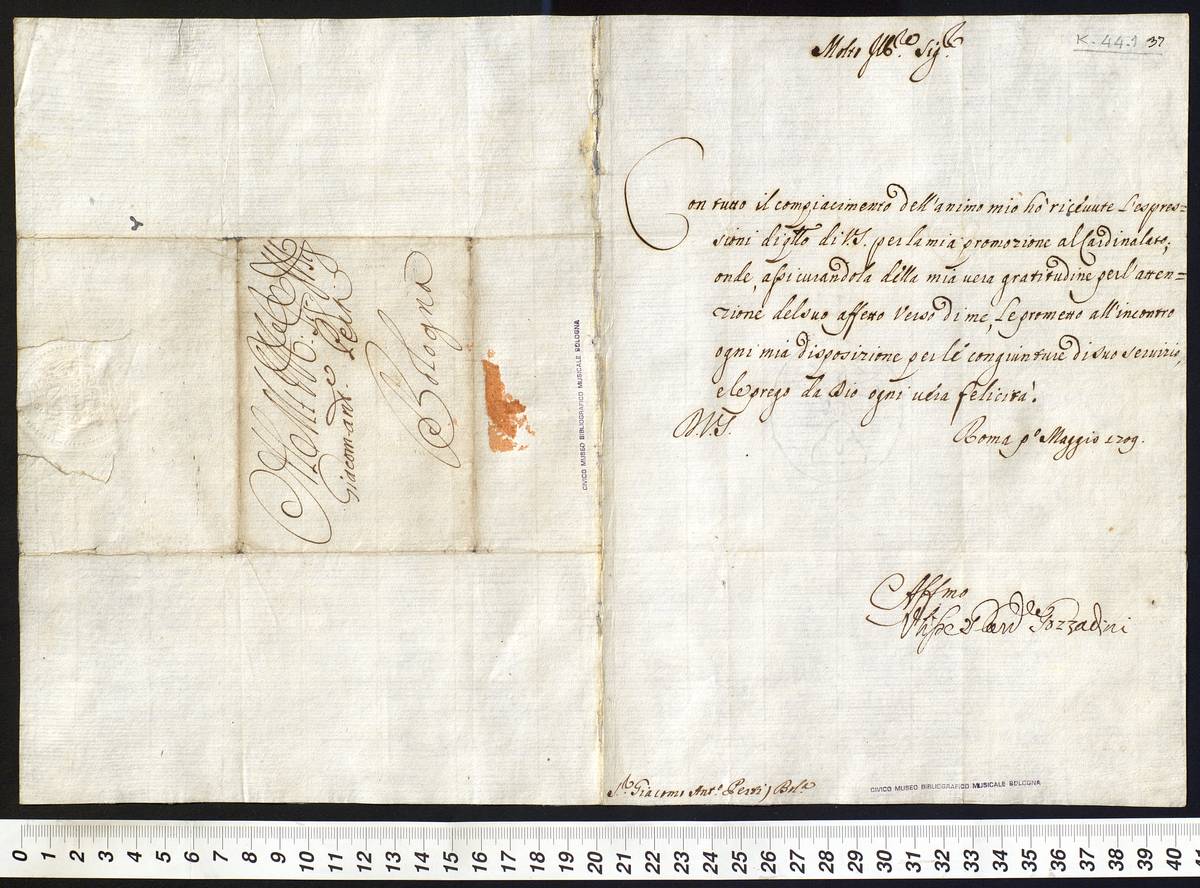 K. 44.1 37
Molto Ill.re Sig.re
Con tutto il compiacimento dell'animo mio hò riceuute l'espres=
sioni di g͞sto di V.S. per la mia promozione al Cardinalato;
onde, assicurandola della mia vera gratitudine per l'atten=
zione del suo affetto verso di me, Le prometto all'incontro
ogni mia disposizione per le congiunture di suo seruizio,
e le prego da Dio ogni vera felicità.
D.V.S. Roma p.o Maggio 1709.
Affmo
Card. Gozzadini
S.r Giacomo Ant.o Perti, Bol.a
CIVICO MUSEO BIBLIOGRAFICO MUSICALE BOLOGNA
Giacomo Ant.o Perti
Bologna
CIVICO MUSEO BIBLIOGRAFICO MUSICALE BOLOGNA
0 1 2 3 4 5 6 7 8 9 10 11 12 13 14 15 16 17 18 19 20 21 22 23 24 25 26 27 28 29 30 31 32 33 34 35 36 37 38 39 40